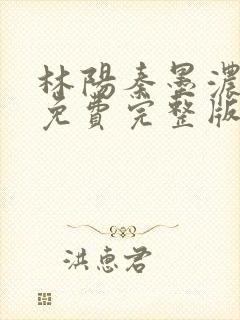 林陽秦墨濃
免費完整版
洪惠君